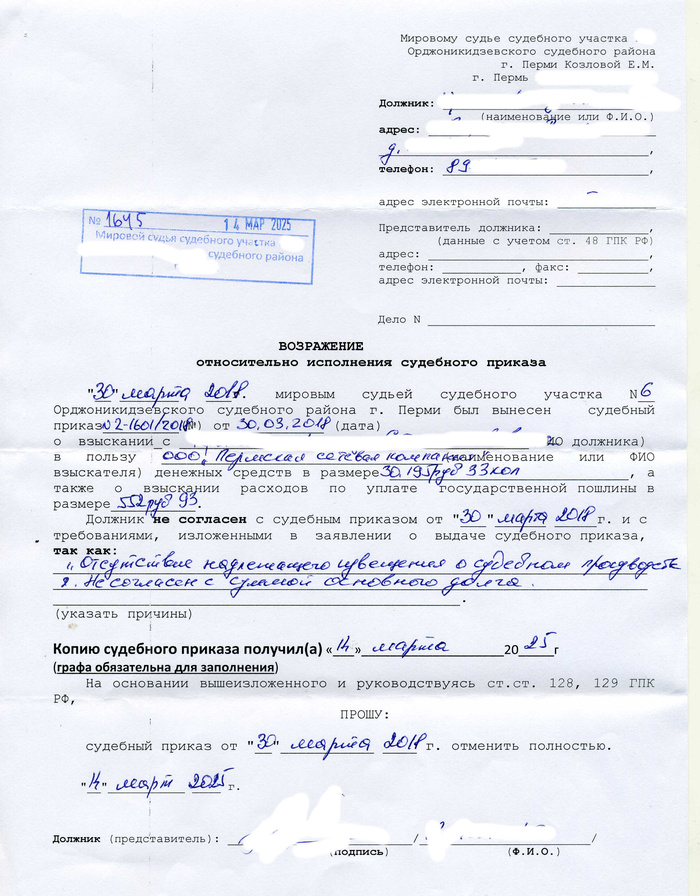 Мировому судье судебного участка
Орджоникидзевского судебного района
г. Перми Козловой Е.М.
г. Пермь
Должник:
(наименование или Ф.И.О.)
адрес:
д. ,
телефон: 89 ,
адрес электронной почты: –
№ 1645 14 МАР 2025
Мировой судья судебного участка
судебного района
Представитель должника: ,
(данные с учетом ст. 48 ГПК РФ)
адрес: ,
телефон: , факс: ,
адрес электронной почты:
Дело N
ВОЗРАЖЕНИЕ
относительно исполнения судебного приказа
"30" марта 2018г. мировым судьей судебного участка N 6
Орджоникидзевского судебного района г. Перми был вынесен судебный
приказ N 2-1601/2018 от 30.03.2018 (дата)
о взыскании с ИО должника)
в пользу ООО "Пермская сетевая компания" наименование или ФИО
взыскателя) денежных средств в размере 30.195 руб 33 коп , а
также о взыскании расходов по уплате государственной пошлины в
размере 552 руб 93.
Должник не согласен с судебным приказом от "30" марта 2018г. и с
требованиями, изложенными в заявлении о выдаче судебного приказа,
так как:
1. Отсутствие надлежащего извещения о судебном
2. Не согласен с суммой основного долга.
.
(указать причины)
Копию судебного приказа получил(а) «14» марта 2025г
(графа обязательна для заполнения)
На основании вышеизложенного и руководствуясь ст.ст. 128, 129 ГПК
РФ,
ПРОШУ:
судебный приказ от "30" марта 2018 г. отменить полностью.
"14" март 2025г.
Должник (представитель): / /
(подпись) (Ф.И.О.)